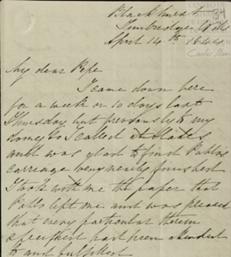 Blackhurst
Tunbridge Wells
April 14th 1844
My dear Pipe
I came down here
for a week or 10 days last
Thursday but previously to my
doing so I called at
and was glad to find
carriage very nearly finished
I took with me the paper that
left me and was pleased
that every particular therein
specified had been attended
to and fulfilled